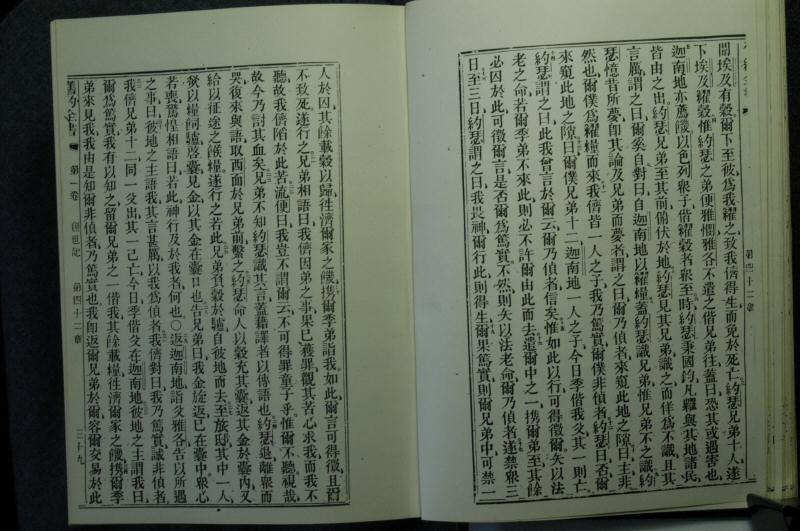 聞埃及有穀爾下至彼爲我糴之致我儕得生而免於死亡約瑟兄弟十人遂
下埃及糴穀惟約瑟之弟便雅憫雅各不遣之偕兄弟往蓋曰恐其或遇害也
迦南地亦薦饑以色列衆子偕糴穀者衆至時約瑟秉國鈞凡糶與其地諸民
皆由之出約瑟兄弟至其前俯伏於地約瑟見其兄弟識之而佯爲不識且其
言厲謂之曰爾奚自對曰自迦南地以糴糧蓋約瑟識兄弟惟兄弟不之識約
瑟憶昔所夢卽其論及兄弟而夢者謂之曰爾乃偵者來窺此地之隙曰主非
然也爾僕爲糴糧而來我儕皆一人之子我乃篤實爾僕非偵者約瑟曰否爾
來窺此地之隙曰爾僕兄弟十二迦南地一人之子今日季偕我父其一則亡
約瑟謂之曰此我曾言於爾云爾乃偵者信矣惟如此以行可得徵爾矢以法
老之命若爾季弟不來此則必不許爾由此而去遣爾中之一携爾弟至其餘
必囚於此可徵爾言是否爾爲篤實不然則矢以法老命爾乃偵者遂禁衆三
日至三日約瑟謂之曰我畏神爾行此則得生爾果篤實則爾兄弟中可禁一
第四十二章
人於囚其餘載穀以歸往濟爾家之饑携爾季弟詣我如此爾言可得徵且爾
不致死遂行之兄弟相語曰我儕因弟之事果已獲罪觀其苦心求我而我不
聽故我儕陷於此苦流便曰我豈不謂爾云不可得罪童子乎惟爾不聽視哉
故今乃討其血矣兄弟不知約瑟識其言蓋藉譯者以傳語也約瑟退離衆而
哭復來與語取西面於兄弟前繫之約瑟命人以穀充其囊返其金於囊內又
給以征途之餱糧遂行之若此兄弟負穀於驢自彼地而去至旅邸其中一人
欲以糧飼驢啓囊見金以其金在囊口也告兄弟曰我金旋返已在囊中衆心
若喪驚惶相語曰若此神行及於我者何也〇返迦南地詣父雅各告以所遇
之事曰彼地之主語我其言甚厲以我爲偵者我儕對曰我乃篤實誠非偵者
我儕兄弟十二同一父出其一已亡今日季偕父在迦南地彼地之主謂我曰
爾爲篤實我有以知之留爾兄弟之一偕我其餘載糧往濟爾家之饑携爾季
弟來見我我由是知爾非偵者乃篤實也我卽返爾兄弟於爾容爾交易於此
舊約全書 第一卷 創世記 第四十二章 三十九